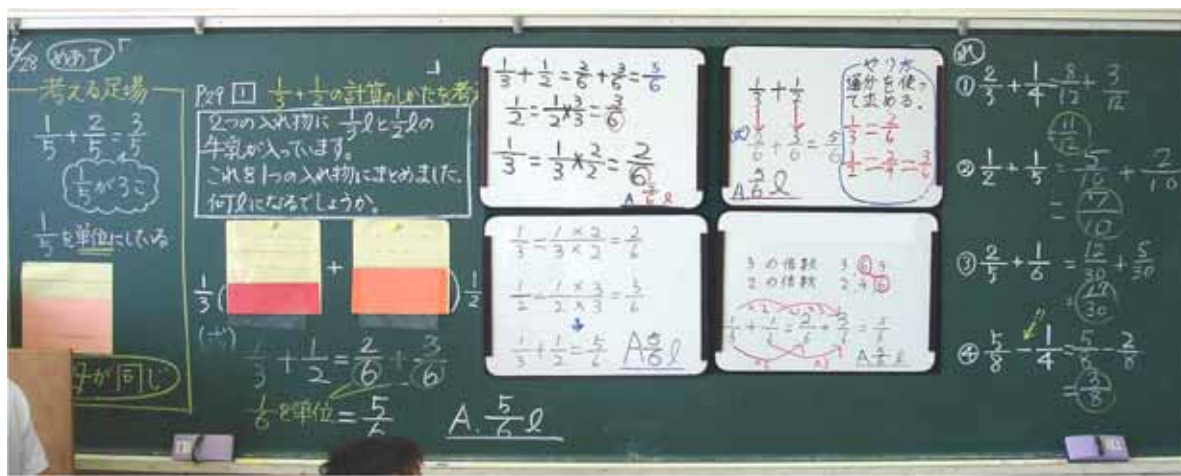 28 めあて
考える足場
1/5 + 2/5 = 3/5
1/5が3こ
1/5を単位にしている
が同じ
P29 1 1/3 + 1/2 の計算のしかたを考
2つの入れ物に 1/3 ℓと 1/2 ℓの
牛乳が入っています。
これを1つの入れ物にまとめました。
何ℓになるでしょうか。
1/3 + 1/2
1/3 + 1/2 = 2/6 + 3/6
1/6を単位 = 5/6
A. 5/6 ℓ
1/3 + 1/2 = 2/6 + 3/6 = 5/6
1/2 = 1/2 × 3/3 = 3/6
1/3 = 1/3 × 2/2 = 2/6
A 5/6 ℓ
1/3 + 1/2
2/6 + 3/6 = 5/6
A. 5/6 ℓ
やり方
通分を使っ
て求める。
1/3 = 2/6
1/2 = 2/4 = 3/6
1/3 = 1×2/3×2 = 2/6
1/2 = 1×3/2×3 = 3/6
1/3 + 1/2 = 5/6 A 5/6 ℓ
3の倍数 3 6 9
2の倍数 2 4 6
1/3 + 1/2 = 2/6 + 3/6 = 5/6
A 5/6 ℓ
① 2/3 + 1/4 = 8/12 + 3/12
= 11/12
② 1/2 + 1/5 = 5/10 + 2/10
= 7/10
③ 2/5 + 1/6 = 12/30 + 5/30
= 17/30
④ 5/8 - 1/4 = 5/8 - 2/8
= 3/8